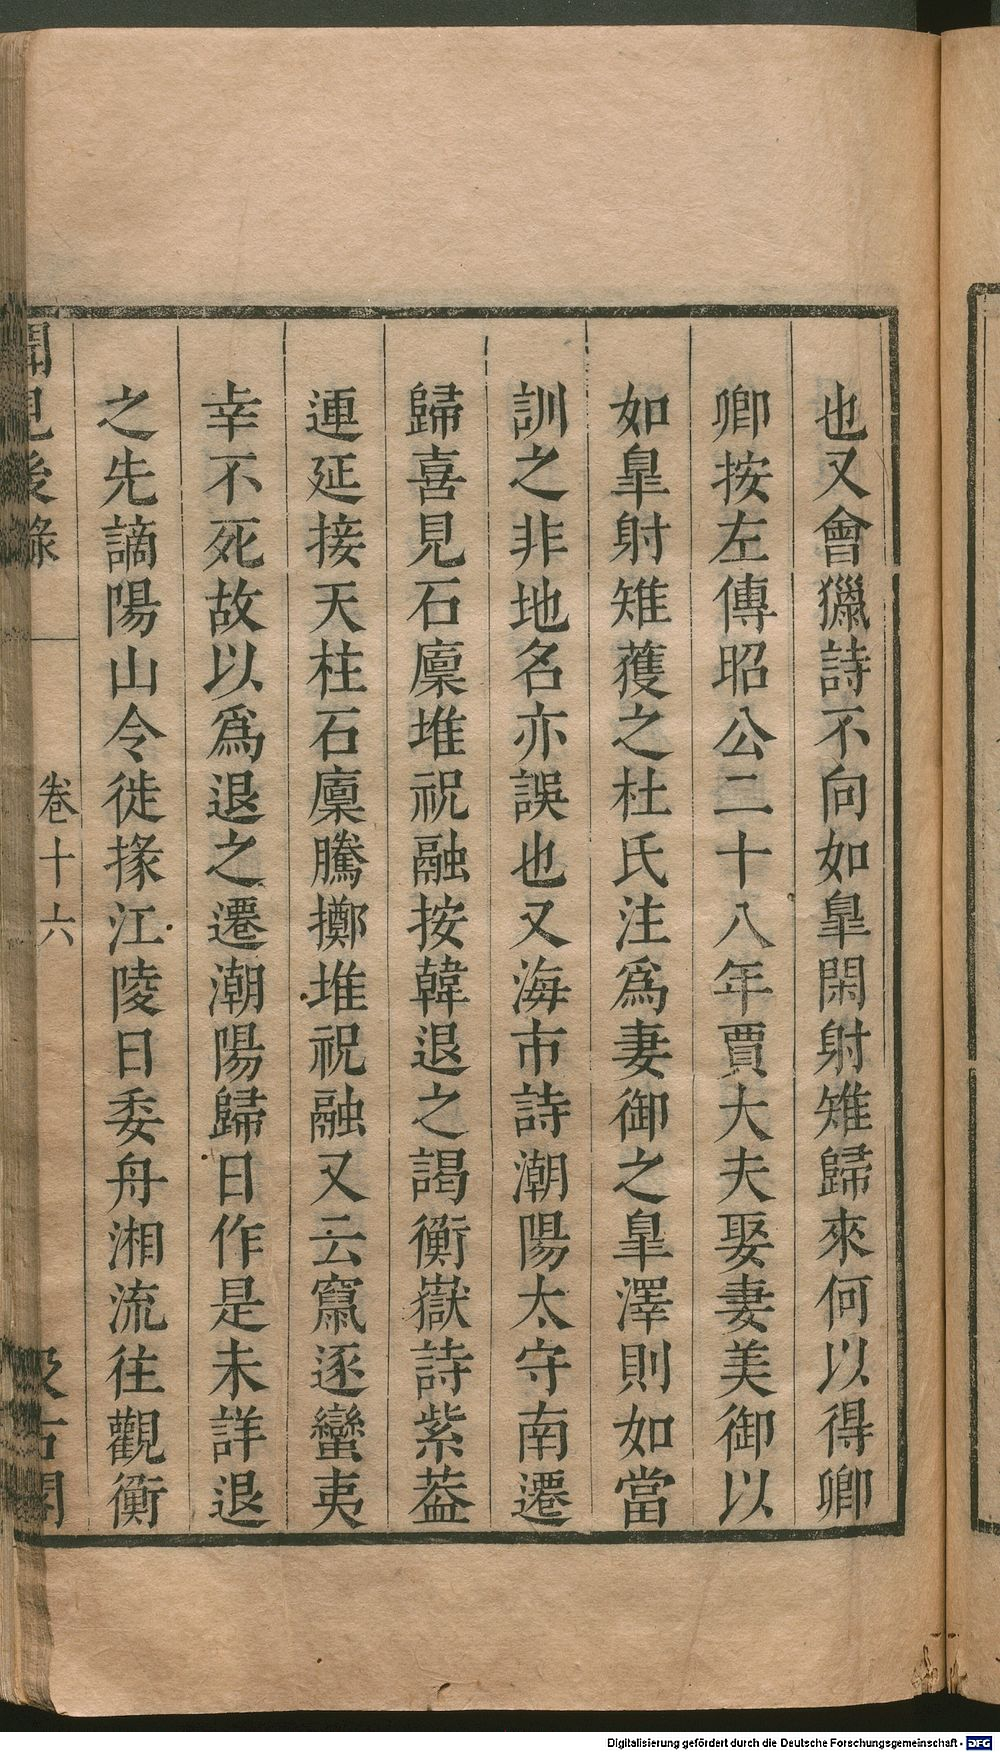 也又會獵詩不向如臯閑射雉歸來何以得卿
卿按左傳昭公二十八年賈大夫娶妻美御以
如臯射雉蒦之杜氏注爲妻御之臯澤則如當
訓之非地名亦誤也又海市詩潮陽太守南遷
歸喜見石廪堆祝融按韓退之謁衡嶽詩紫葢
連延接天柱石廪騰擲堆祝融又云竄逐蠻夷
幸不死故以爲退之遷潮陽歸日作是未詳退
之先謫陽山令徙掾江陵日委舟湘流往觀衡
聞見後錄
卷十六
汲古閣
Digitalisierung gefördert durch die Deutsche Forschungsgemeinschaft - DFG